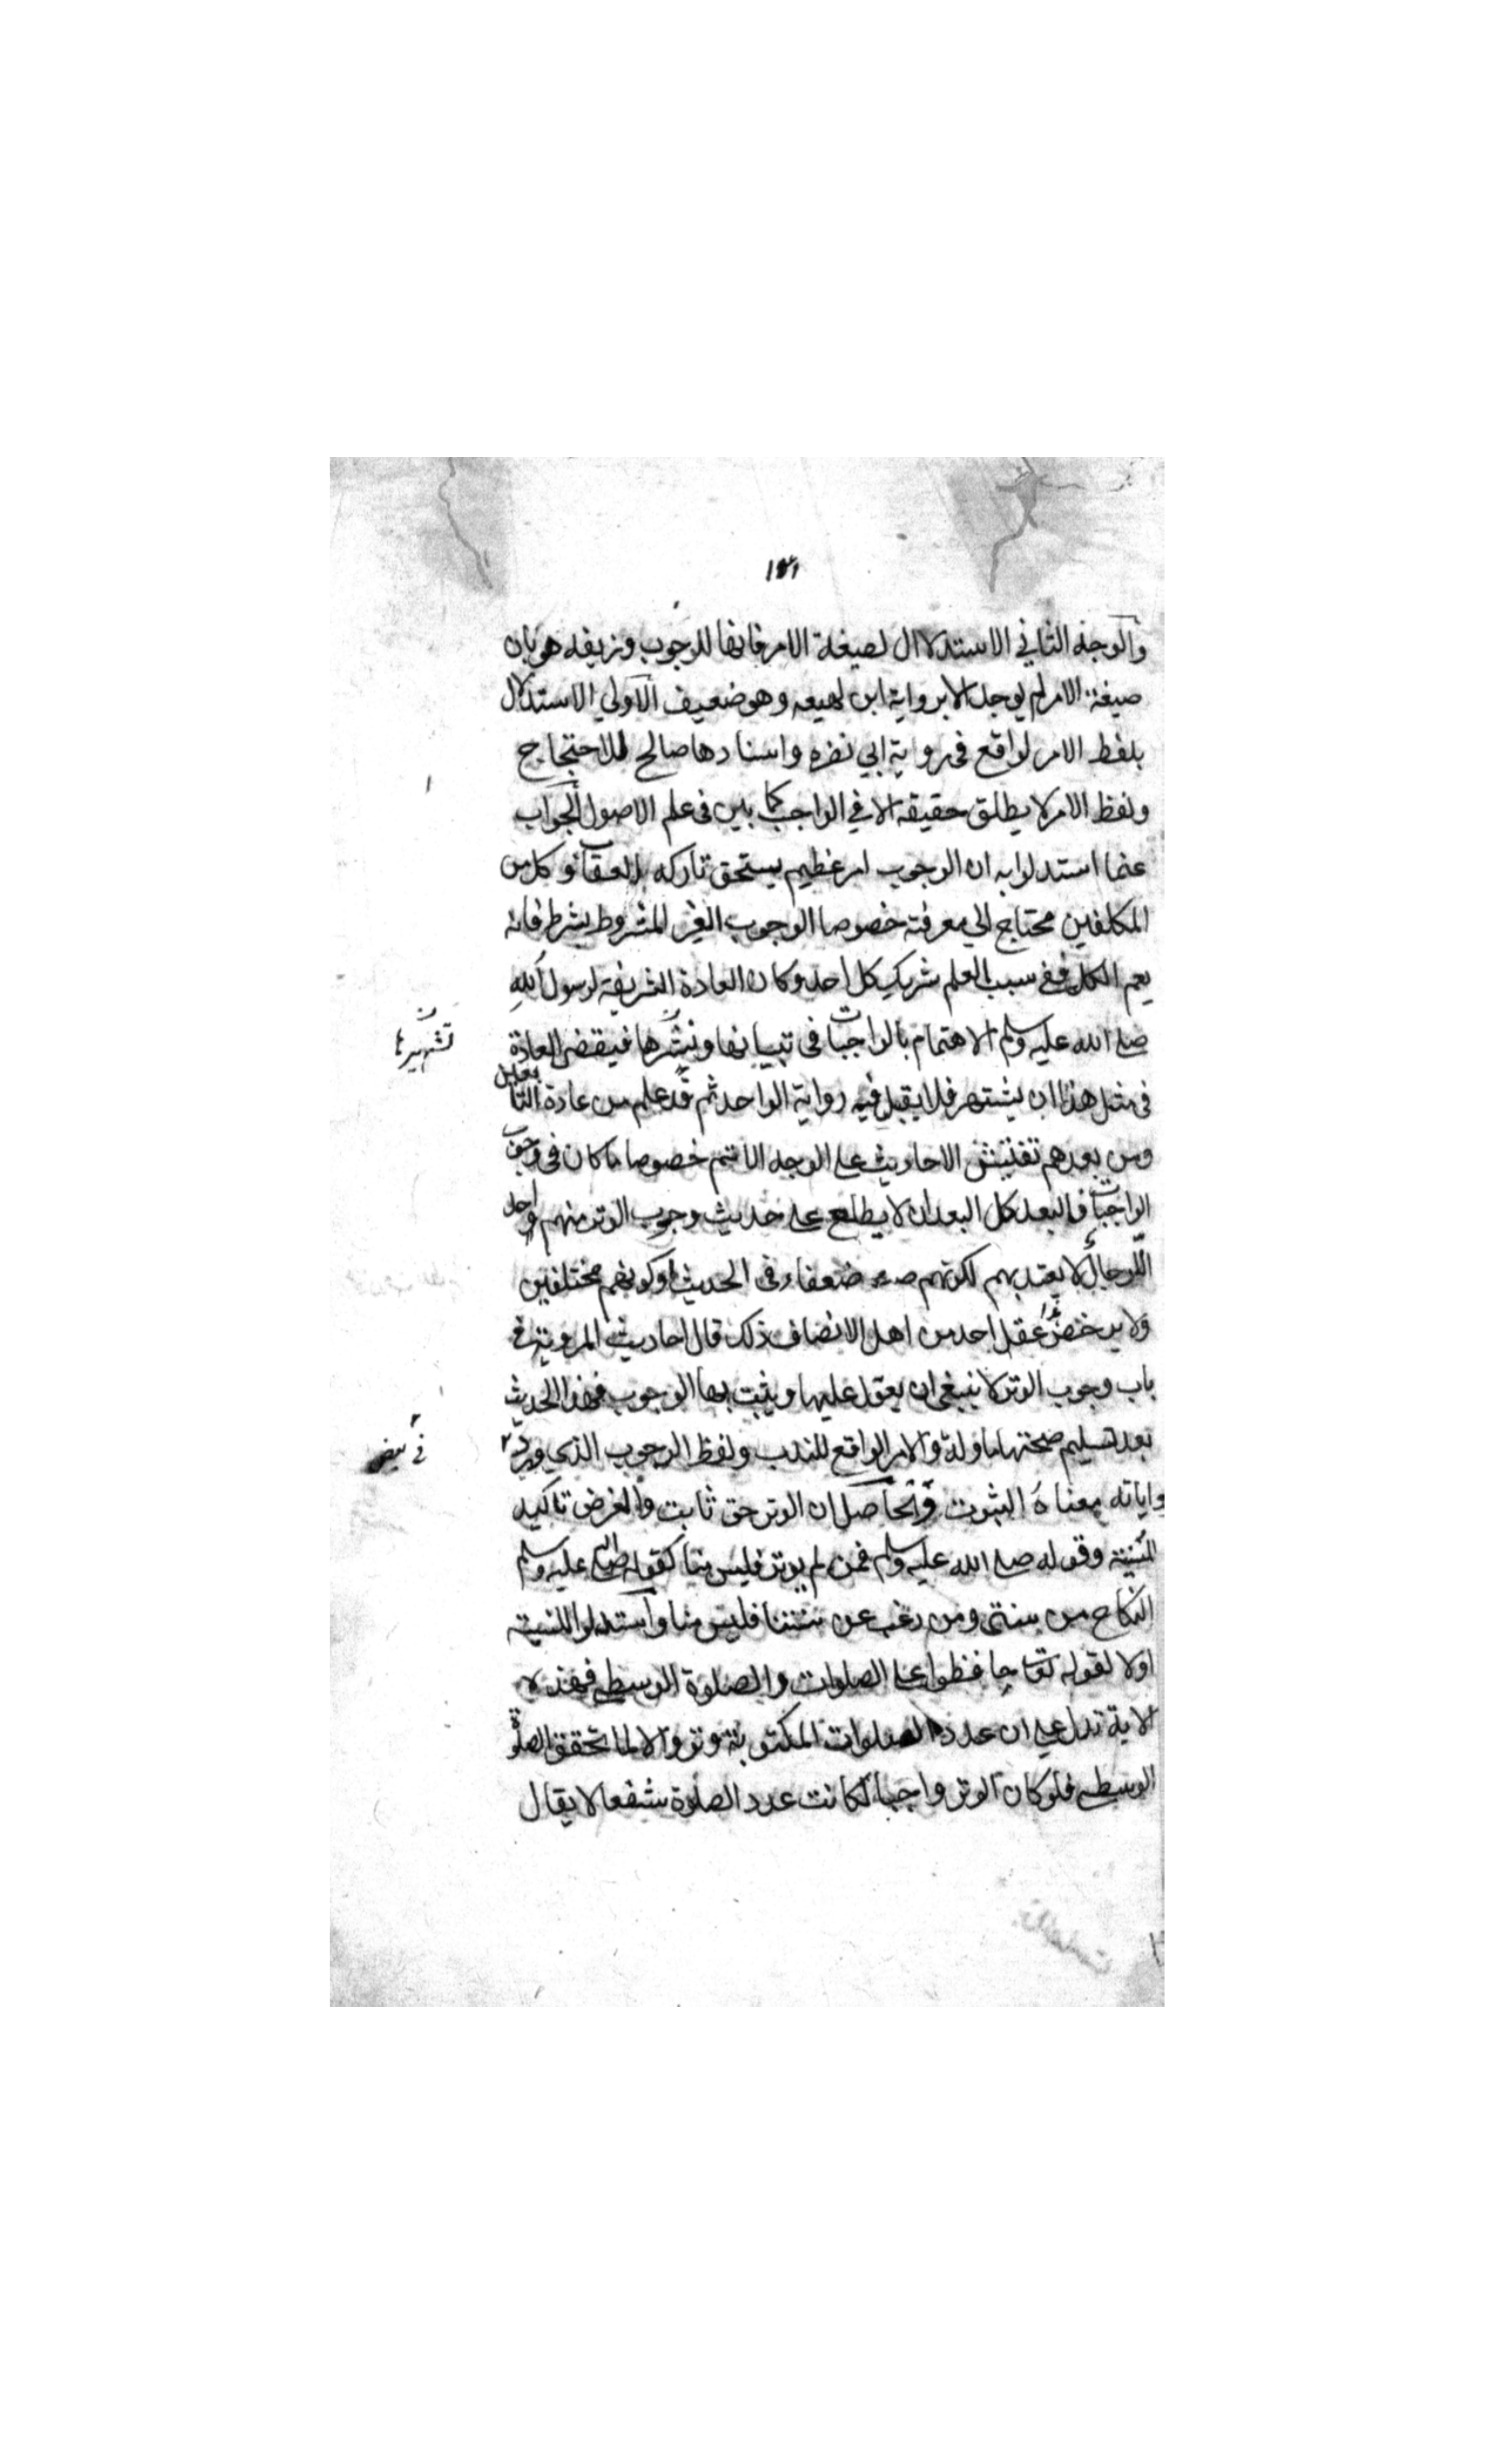 ١٣١
والوجه الثاني الاستدلال بصيغة الامر فانها للوجوب وتزيفه هو بان
صيغة الامر لم يوجد الا برواية ابن لهيعه وهو ضعيف الاولي الاستدلال
بلفظ الامر لواقع في رواية ابي نضره واسنادها صالح للاحتجاج
ولفظ الامر لا يطلق حقيقة الا في الواجب كما بين في علم الاصول الجواب
عنما استدلوا به ان الوجوب امر عظيم يستحق تاركه العقاب وكل من
المكلفين محتاج الي معرفته خصوصا الوجوب الغير المشروط بشرط فانه
يعم الكل ففي سبب العلم شريك كل احد وكان العادة الشريفة لرسول الله
صلى الله عليه وسلم الاهتمام بالواجبات في تبيانها ونشرها فيقضى العادة
تشهيرها
في مثل هذا ان يشتهر فلا يقبل فيه رواية الواحد ثم قد علم من عادة التابعين
ومن بعدهم تفتيش الاحاديث على الوجه الاتم خصوصا ما كان في وجوب
الواجبات فالبعد كل البعد ان لا يطلع على حديث وجوب الوتر منهم واحد
الا رجال لا يعتد بهم لكونهم ضعفاء في الحديث او كونهم مختلفين
ولا يرخص عقل احد من اهل الانصاف ذلك قال احاديث المروية في
باب وجوب الوتر لا ينبغي ان يعول عليها ويثبت بها الوجوب فهذا الحديث
بعد تسليم صحتها ماولة والامر الواقع للندب ولفظ الوجوب الذي ورد
في بعض
واياته معناه الثبوت والحاصل ان الوتر حق ثابت والغرض تاكيد
السنية وقوله صلى الله عليه وسلم فمن لم يوتر فليس منا كقوله صلى الله عليه وسلم
النكاح من سنتي ومن رغب عن سنتنا فليس منا واستدلوا للسنية
اولا لقوله تعا حافظوا على الصلوات والصلوة الوسطى فهذه
الاية تدل على ان عدد الصلوات المكتوبة وتر والا لما تحقق الصلوة
الوسطى فلو كان الوتر واجبا لكانت عدد الصلوة شفعا لا يقال